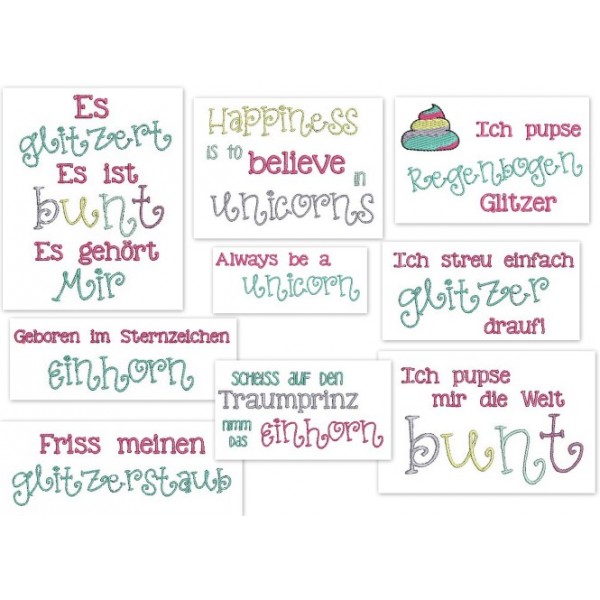 Es
glitzert
Es ist
bunt
Es gehört
Mir
Happiness
is to believe in
unicorns
Ich pupse
Regenbogen
Glitzer
Always be a
unicorn
Ich streu einfach
glitzer
drauf!
Geboren im Sternzeichen
Einhorn
Scheiss auf den
Traumprinz
nimm das Einhorn
Ich pupse
mir die Welt
bunt
Friss meinen
glitzerstaub